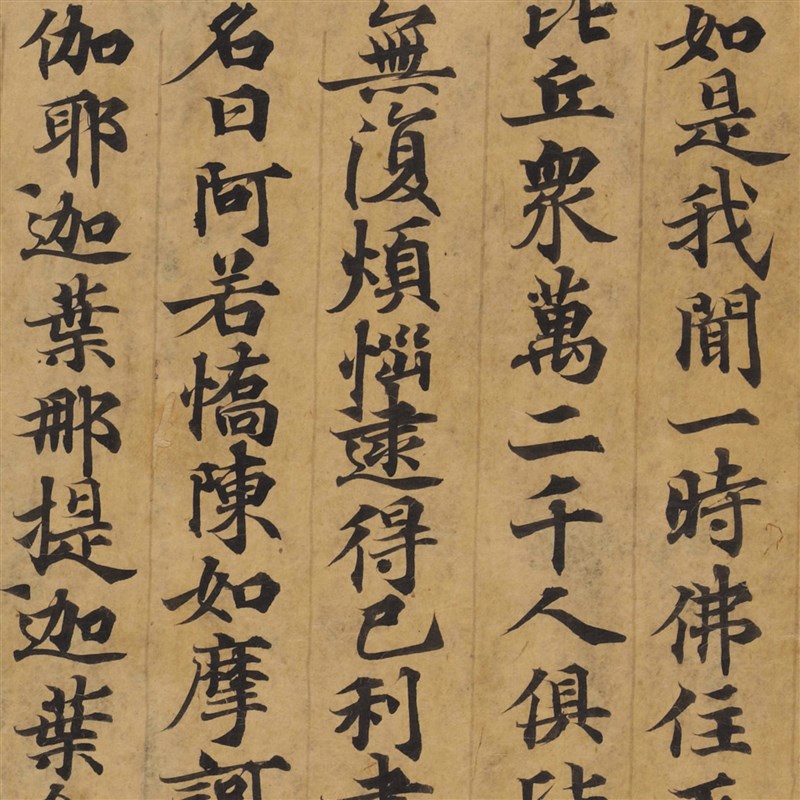 如是我聞一時佛住
比丘衆萬二千人俱
無復煩惱逮得已利
名曰阿若憍陳如摩訶
伽耶迦葉那提迦葉